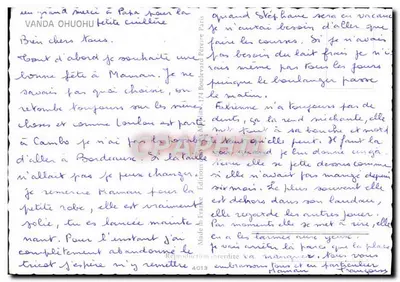 un grand merci à Papa pour la
VANDA OHUOHU
petite cuillère
Bien chers tous.
Tout d'abord je souhaite une
bonne fête à Maman. Je ne
savais pas quoi choisir, on
retombe toujours sur les mêmes
choses et comme est parti
à Cambo je n'ai pas
d'aller à Bordeaux. Si la taille
n'allait pas je peux changer.
Je remercie Maman pour la
petite robe, elle est vraiment
jolie, tu es lancée mainte
nant. Pour l'instant j'ai
complètement abandonné le
tricot j'espère m'y remettre
quand Stéphane sera en vacances
je n'aurai besoin d'aller que
faire les courses. Si je n'avais
pas besoin du lait frais je n'i
rais même pas tous les jours
puisque le boulanger passe
le matin.
Fabienne n'a toujours pas de
dents, ça la rend méchante, elle
met à sa bouche et mord
tout qu'elle peut. Il faut la
voir quand je lui donne à man
elle se jette dessus comme
si elle n'avait pas mangé depuis
six mois. Le plus souvent elle
est dehors dans son landau,
elle regarde les autres jouer.
Par moments elle se met à rire, elle
en a les larmes aux yeux.
Je vais arrêter là parce que la place
va manquer. Nous vous
embrassons tous et en particulier
Maman Françoise
Made in France
Boulevard Pereire Paris
Reproduction interdite
4018